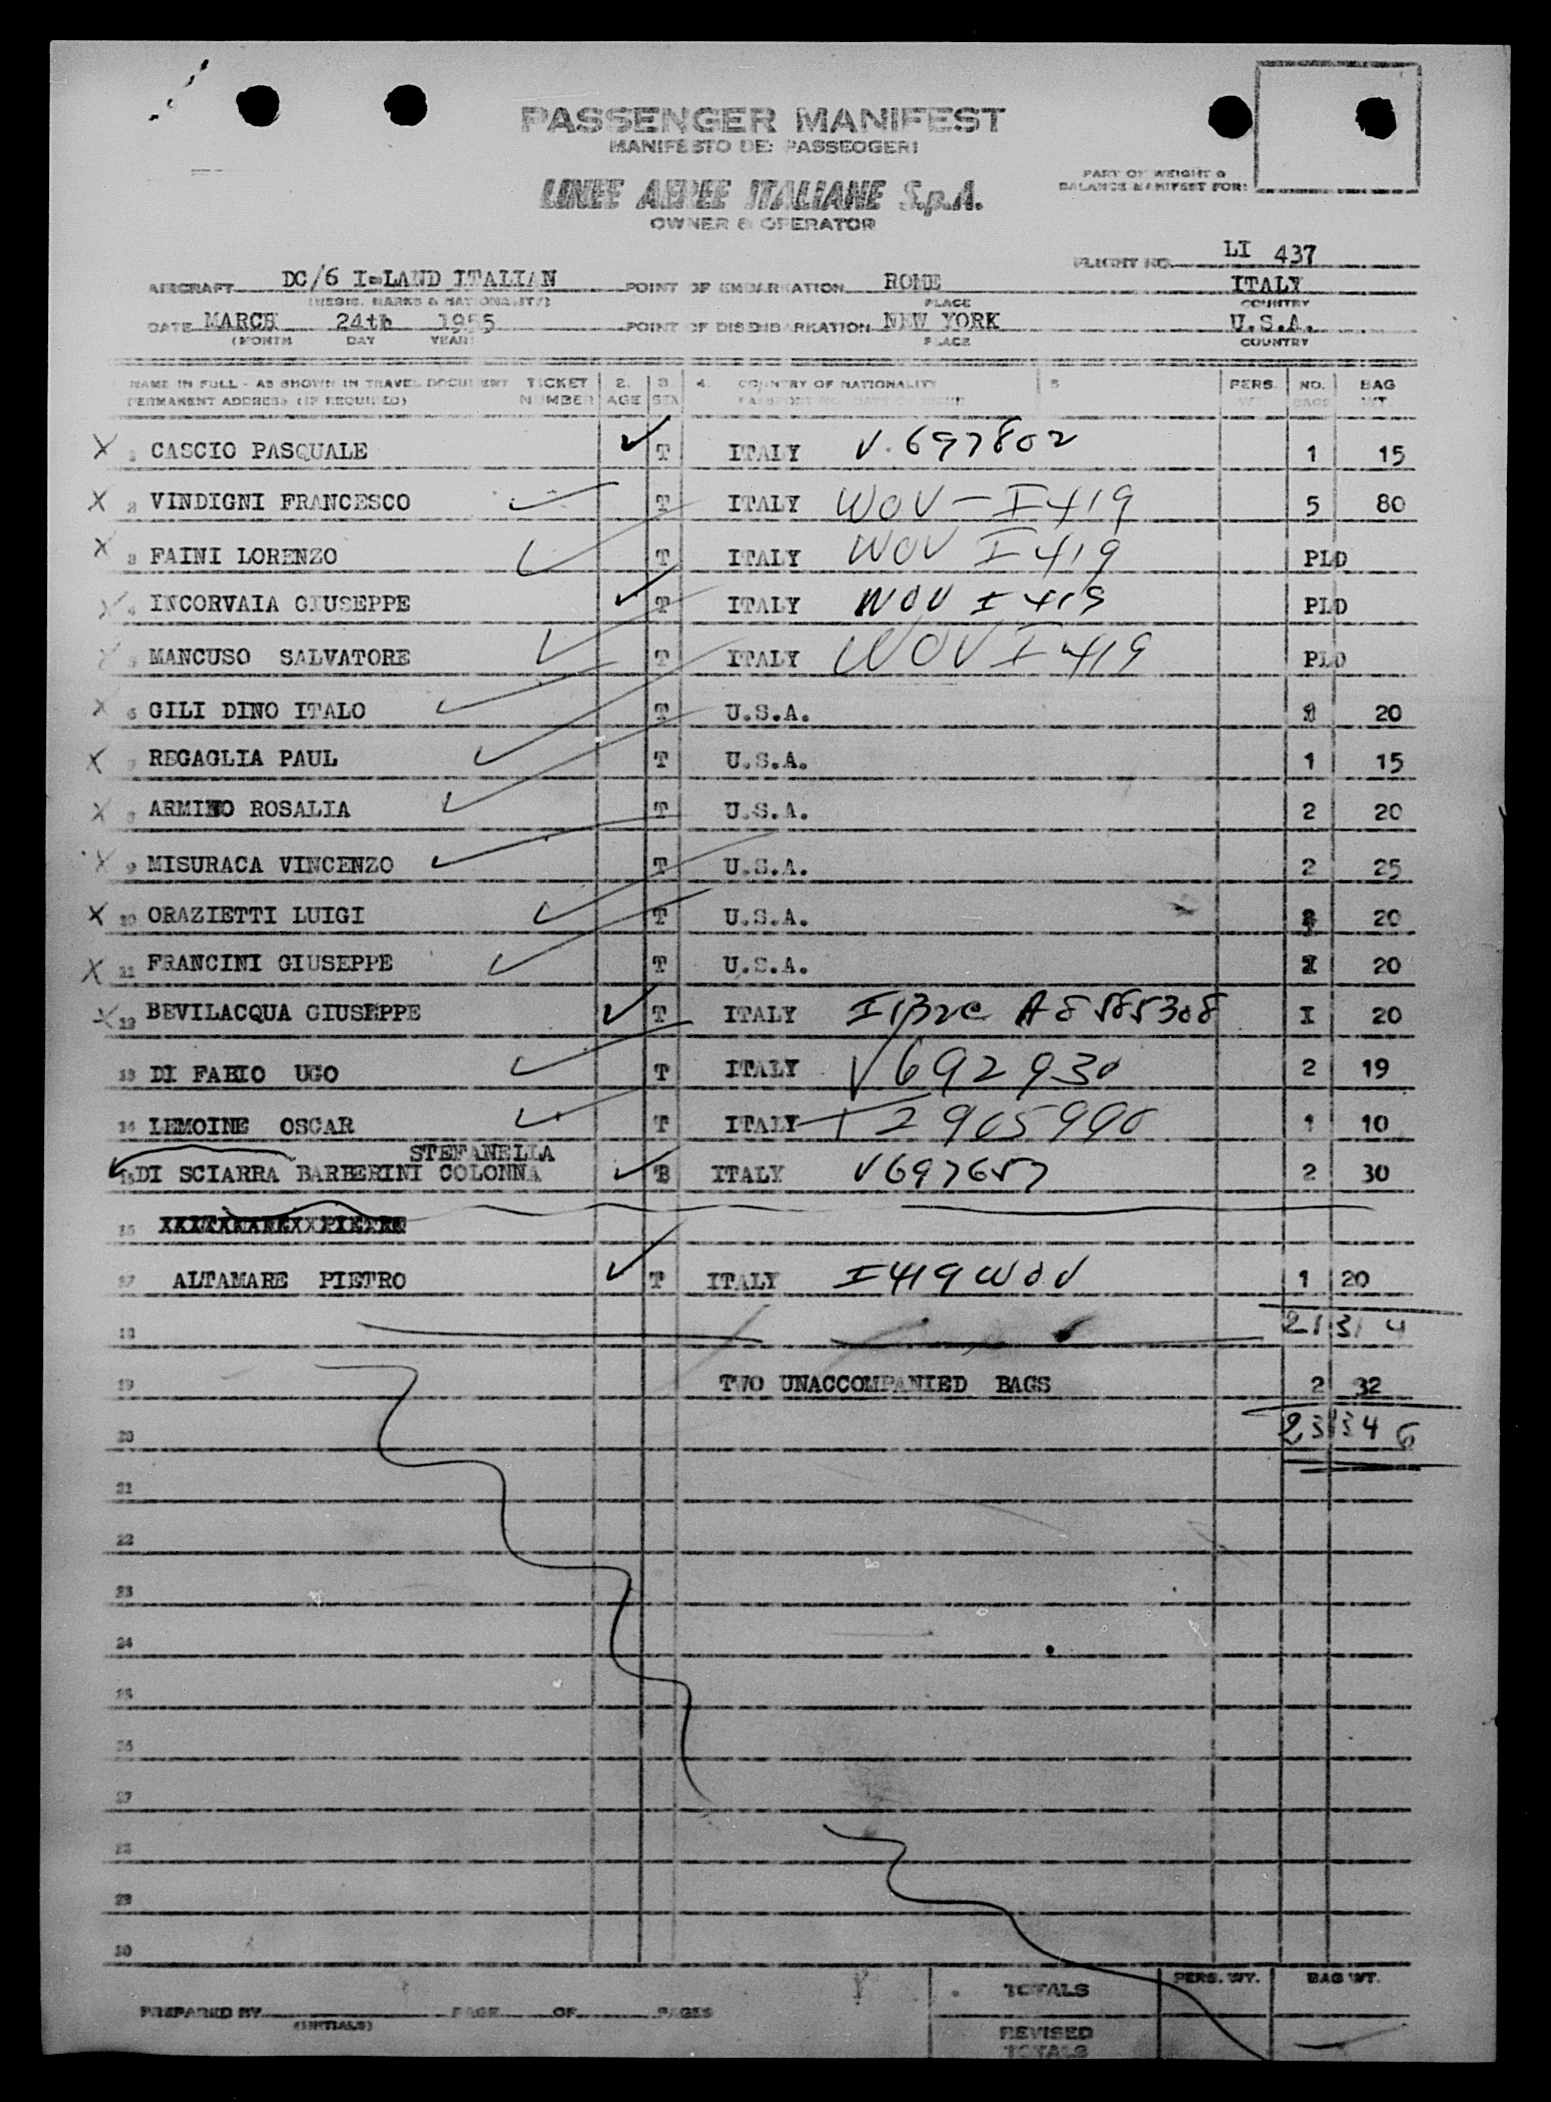 PASSENGER MANIFEST
MANIFESTO DEI PASSEGGERI
LINEE AEREE ITALIANE S.p.A.
OWNER & OPERATOR
PART OF WEIGHT &
BALANCE MANIFEST FOR:
FLIGHT NO. LI 437
AIRCRAFT DC/6 I=LAND ITALIAN POINT OF EMBARKATION ROME ITALY
(REGIS. MARKS & NATIONALITY) PLACE COUNTRY
DATE MARCH 24th 1955 POINT OF DISEMBARKATION NEW YORK U.S.A.
(MONTH DAY YEAR) PLACE COUNTRY
NAME IN FULL - AS SHOWN IN TRAVEL DOCUMENT TICKET 2. 3. 4. COUNTRY OF NATIONALITY 5 PERS. NO. BAG
PERMANENT ADDRESS (IF REQUIRED) NUMBER AGE SEX WT. BAGS WT.
X 1 CASCIO PASQUALE T ITALY V. 697802 1 15
X 2 VINDIGNI FRANCESCO T ITALY WOV - I 419 5 80
X 3 FAINI LORENZO T ITALY WOV I 419 PLD
X 4 INCORVAIA GIUSEPPE T ITALY WOV I 419 PLD
X 5 MANCUSO SALVATORE T ITALY WOV I 419 PLD
X 6 GILI DINO ITALO T U.S.A. 20
X 7 REGAGLIA PAUL T U.S.A. 1 15
X 8 ARMINO ROSALIA T U.S.A. 2 20
X 9 MISURACA VINCENZO T U.S.A. 2 25
X 10 ORAZIETTI LUIGI T U.S.A. 20
X 11 FRANCINI GIUSEPPE T U.S.A. 20
X 12 BEVILACQUA GIUSEPPE T ITALY A8 585308 I 20
13 DI FABIO UGO T ITALY V692930 2 19
14 LEMOINE OSCAR T ITALY 2905990 1 10
STEFANELLA
15 DI SCIARRA BARBERINI COLONNA B ITALY V697657 2 30
16
17 ALTAMARE PIETRO T ITALY I 419 WOV 1 20
18 21 314
19 TWO UNACCOMPANIED BAGS 2 32
20 23 346
21
22
23
24
25
26
27
28
29
30
PREPARED BY PAGE OF PAGES TOTALS PERS. WT. BAG WT.
(INITIALS)
REVISED
TOTALS